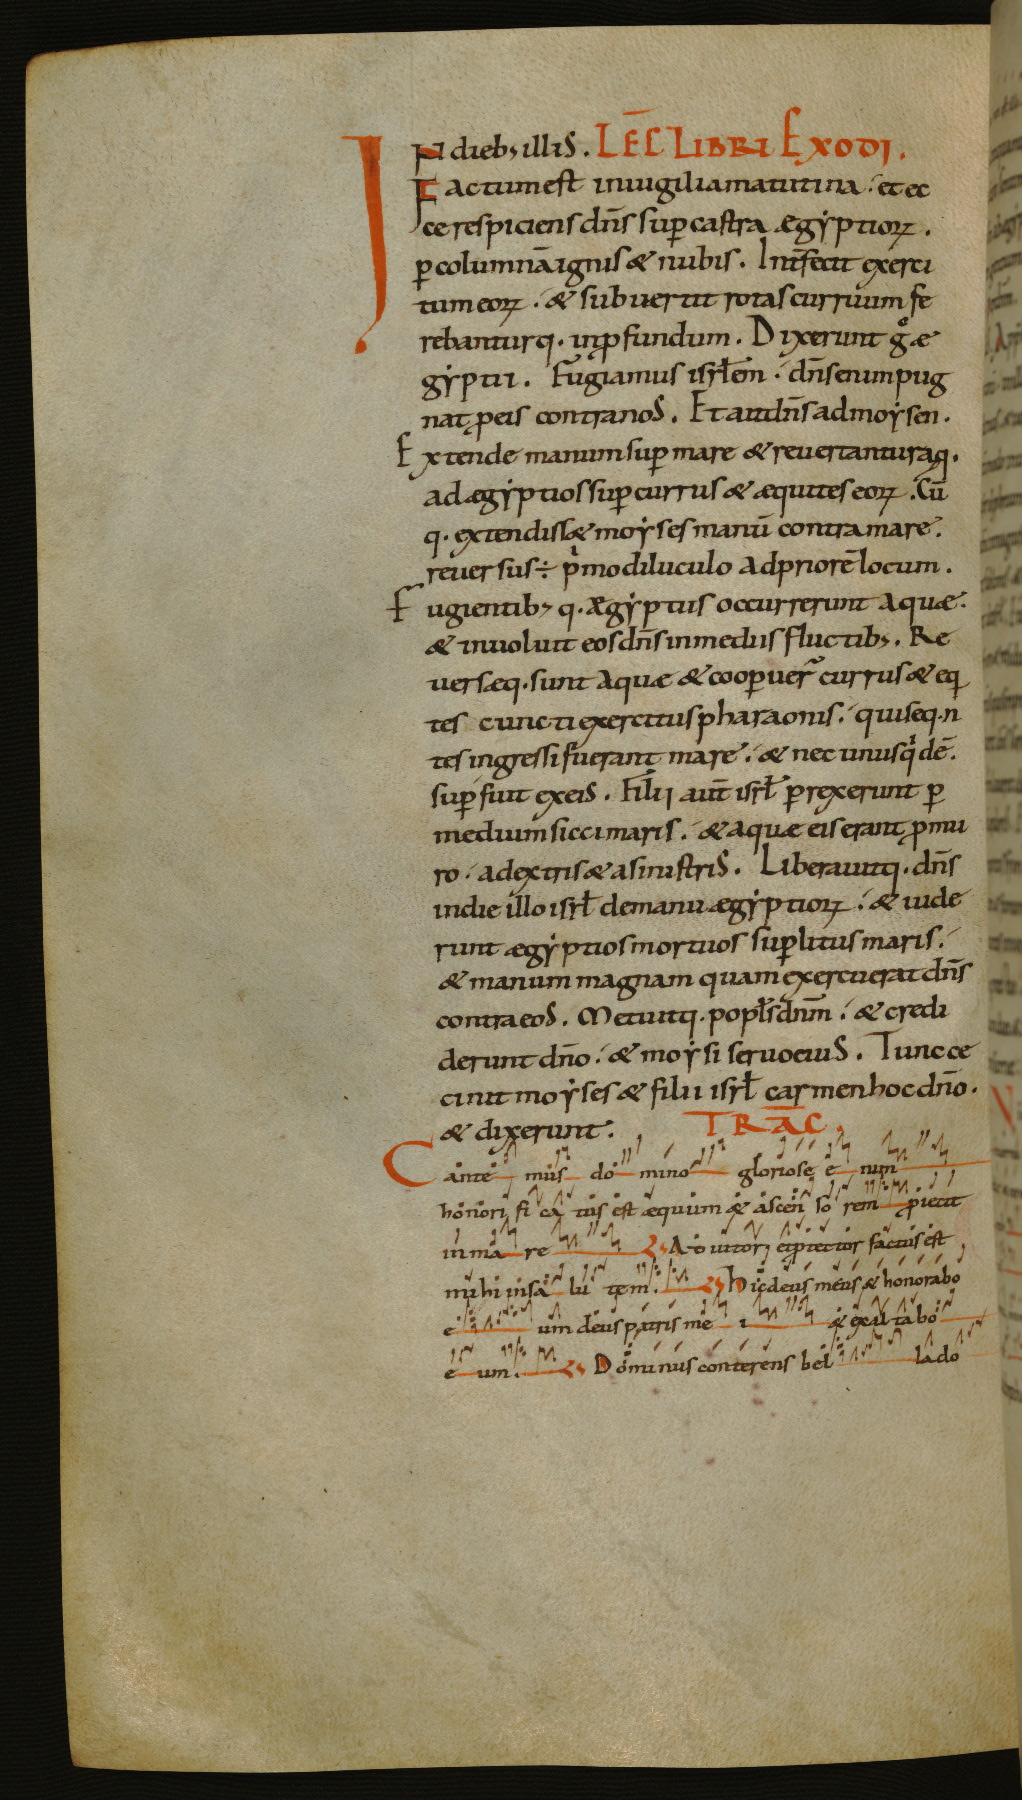 IN dieb; illis. LEC̄ LIBRI EXODI.
Factum est in iugilia matutina. et ec
ce respiciens dn̄s sup̄ castra ægẏptioꝝ.
p̄ columnā ignis & nubis. Interfecit exerci
tum eoꝝ. & subuertit rotas curruum fe
rebanturq. in ꝓfundum. Dixerunt gͦ æ
gẏptii. Fugiamus isrl̄em. dn̄s enim pug
nat ꝓ eis contra nos. Et ait dn̄s ad moẏsen.
Extende manum sup̄ mare & reuertantur aq.
ad ægẏptios sup̄ currus & æquites eoꝝ. Cū
q. extendiss& moẏses manū contra mare.
reuersus ÷ pͥmo diluculo ad priorē locum.
Fugientib; q. Ægẏptiis occurrerunt aquæ.
& inuoluit eos dn̄s in mediis fluctib;. Re
uersæq. sunt aquæ & coop̄uer̄ currus & eq
tes cuncti exercitus pharaonis. qui seq.n
tes ingressi fuerant mare. & nec unus qͥdē.
sup̄fuit ex eis. Filii aut̄ isrl̄ p̄rexerunt p̄
medium sicci maris. & aquæ eis erant ꝓ mu
ro. a dextris & a sinistris. Liberauitq. dn̄s
in die illo isrl̄ de manu ægẏptioꝝ. & uide
runt ægẏptios mortuos sup̄ litus maris.
& manum magnam quam exercuerat dn̄s
contra eos. Metuitq. popl̄s dn̄m. & credi
derunt dn̄o. & moẏsi seruo eius. Tunc ce
cinit moẏses & filii isrl̄ carmen hoc dn̄o.
& dixerunt. TRAC̄.
Cante mus do mino gloriose e nim
honori fi ca tus est æquum & ascen so rem proiecit
in ma re Adiutor et ꝓtector factus est
mihi in sa lu tem. Hic deus meus & honorabo
e um deus patris me i & exal ta bo
e um. Dominus conterens bel la do